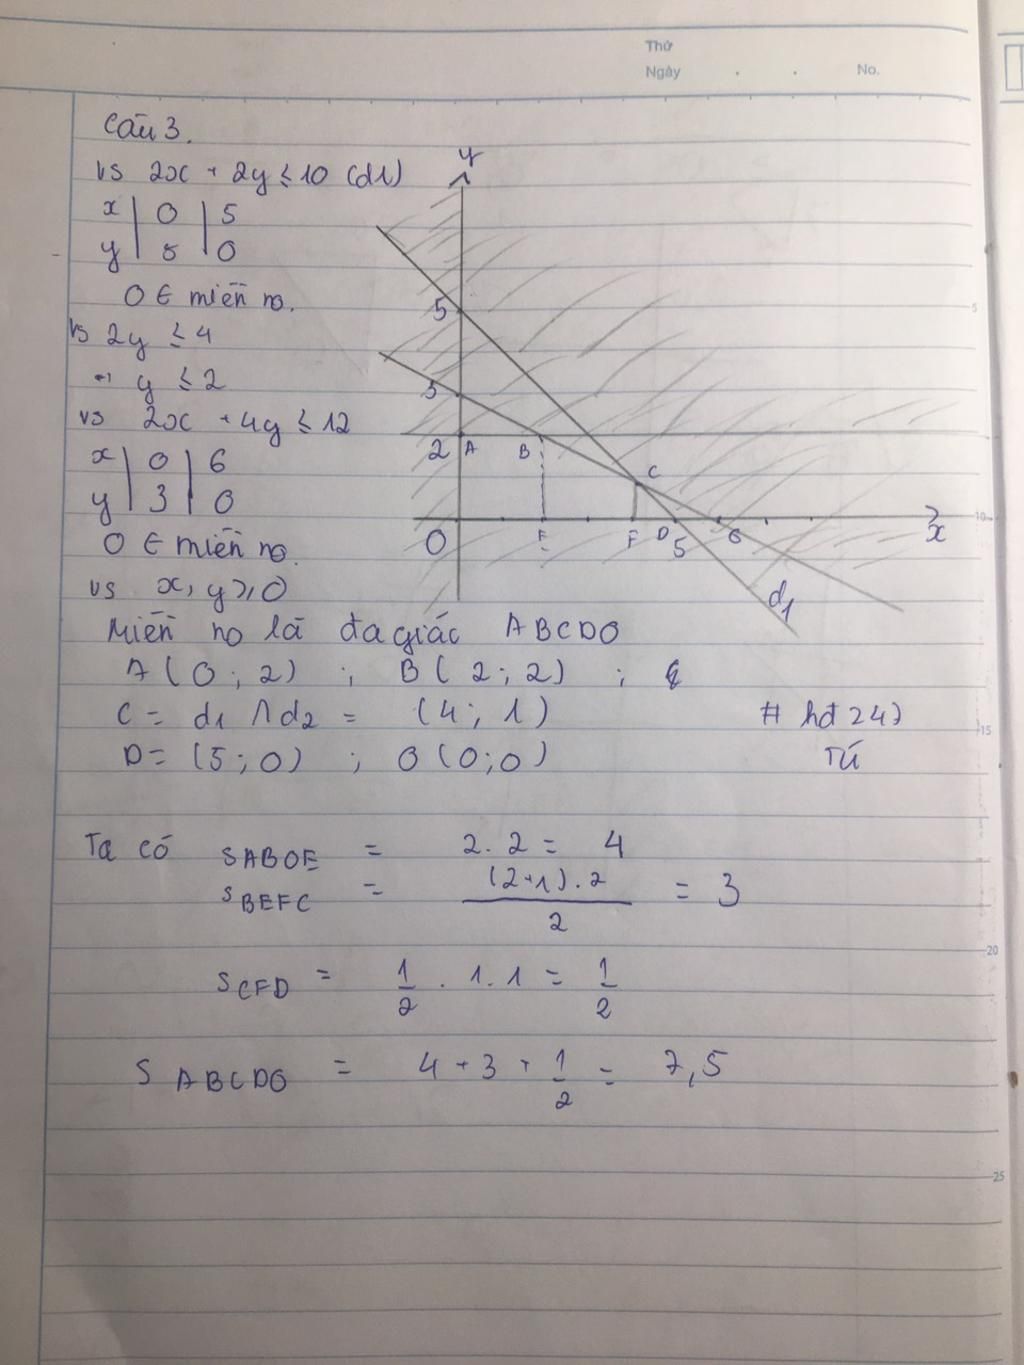 Thứ
Ngày . . No.
Câu 3.
vs 2x + 2y ≤ 10 (d1)
x | 0 | 5
y | 5 | 0
O ∈ miền no.
vs 2y ≤ 4
y ≤ 2
vs 2x + 4y ≤ 12
x | 0 | 6
y | 3 | 0
O ∈ miền no.
vs x, y ≥ 0
y
5
3
2 A B C
O E F D 5 6 x
d1
Miền no là đa giác ABCDO
A (0 ; 2) ; B (2 ; 2) ;
C = d1 ∩ d2 = (4 ; 1)
D = (5 ; 0) ; O (0 ; 0)
# hđ 247
Tú
Ta có S ABOE = 2 . 2 = 4
S BEFC = (2+1) . 2 / 2 = 3
S CFD = 1/2 . 1 . 1 = 1/2
S ABCDO = 4 + 3 + 1/2 = 7,5
5
10
15
20
25